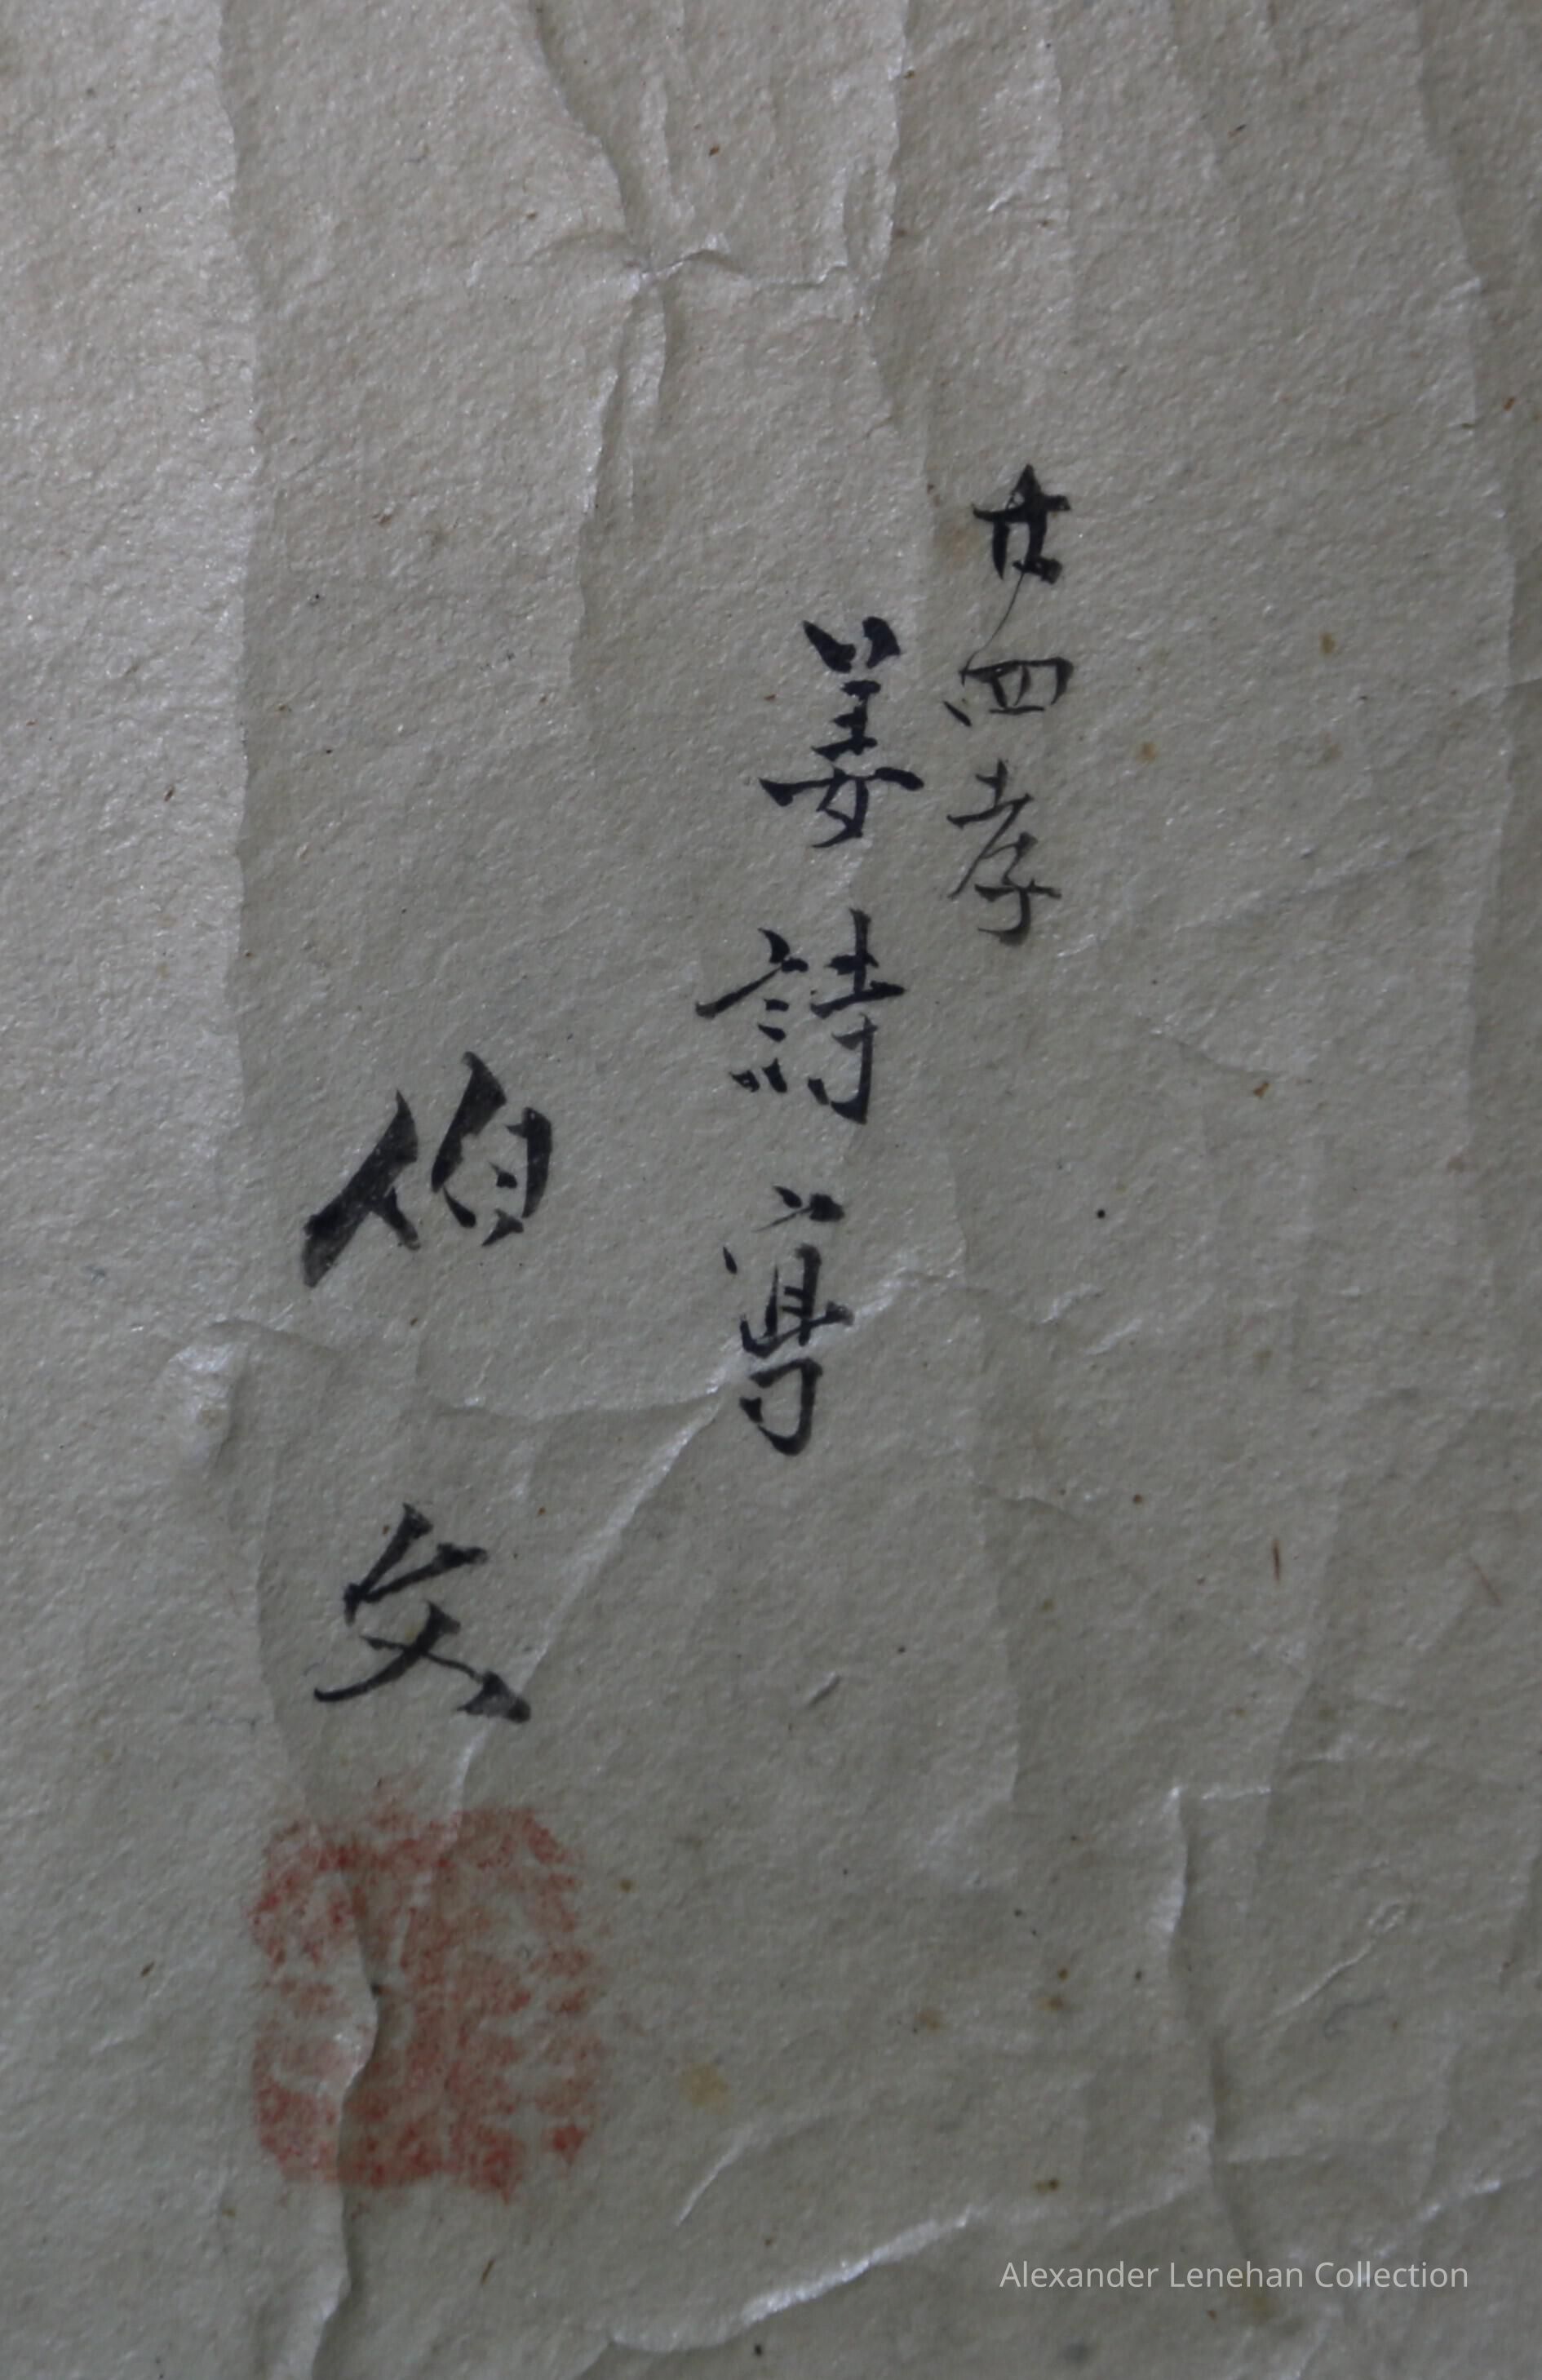 廿四孝
姜詩寫
伯文
Alexander Lenehan Collection